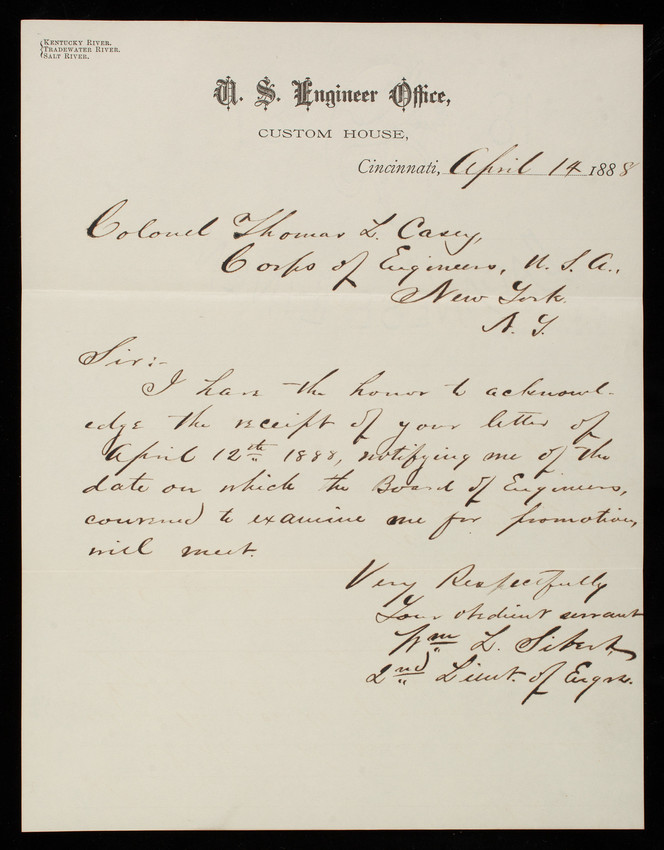 Kentucky River.
Tradewater River.
Salt River.
U. S. Engineer Office,
CUSTOM HOUSE,
Cincinnati, April 14 1888
Colonel Thomas L. Casey,
Corps of Engineers, U. S. A.,
New York.
N. Y.
Sir:-
I have the honor to acknowl-
edge the receipt of your letter of
April 12th 1888, notifying me of the
date on which the Board of Engineers,
convened to examine me for promotion,
will meet.
Very Respectfully
Your obedient servant
Wm L. Sibert,
2nd Lieut. of Engrs.